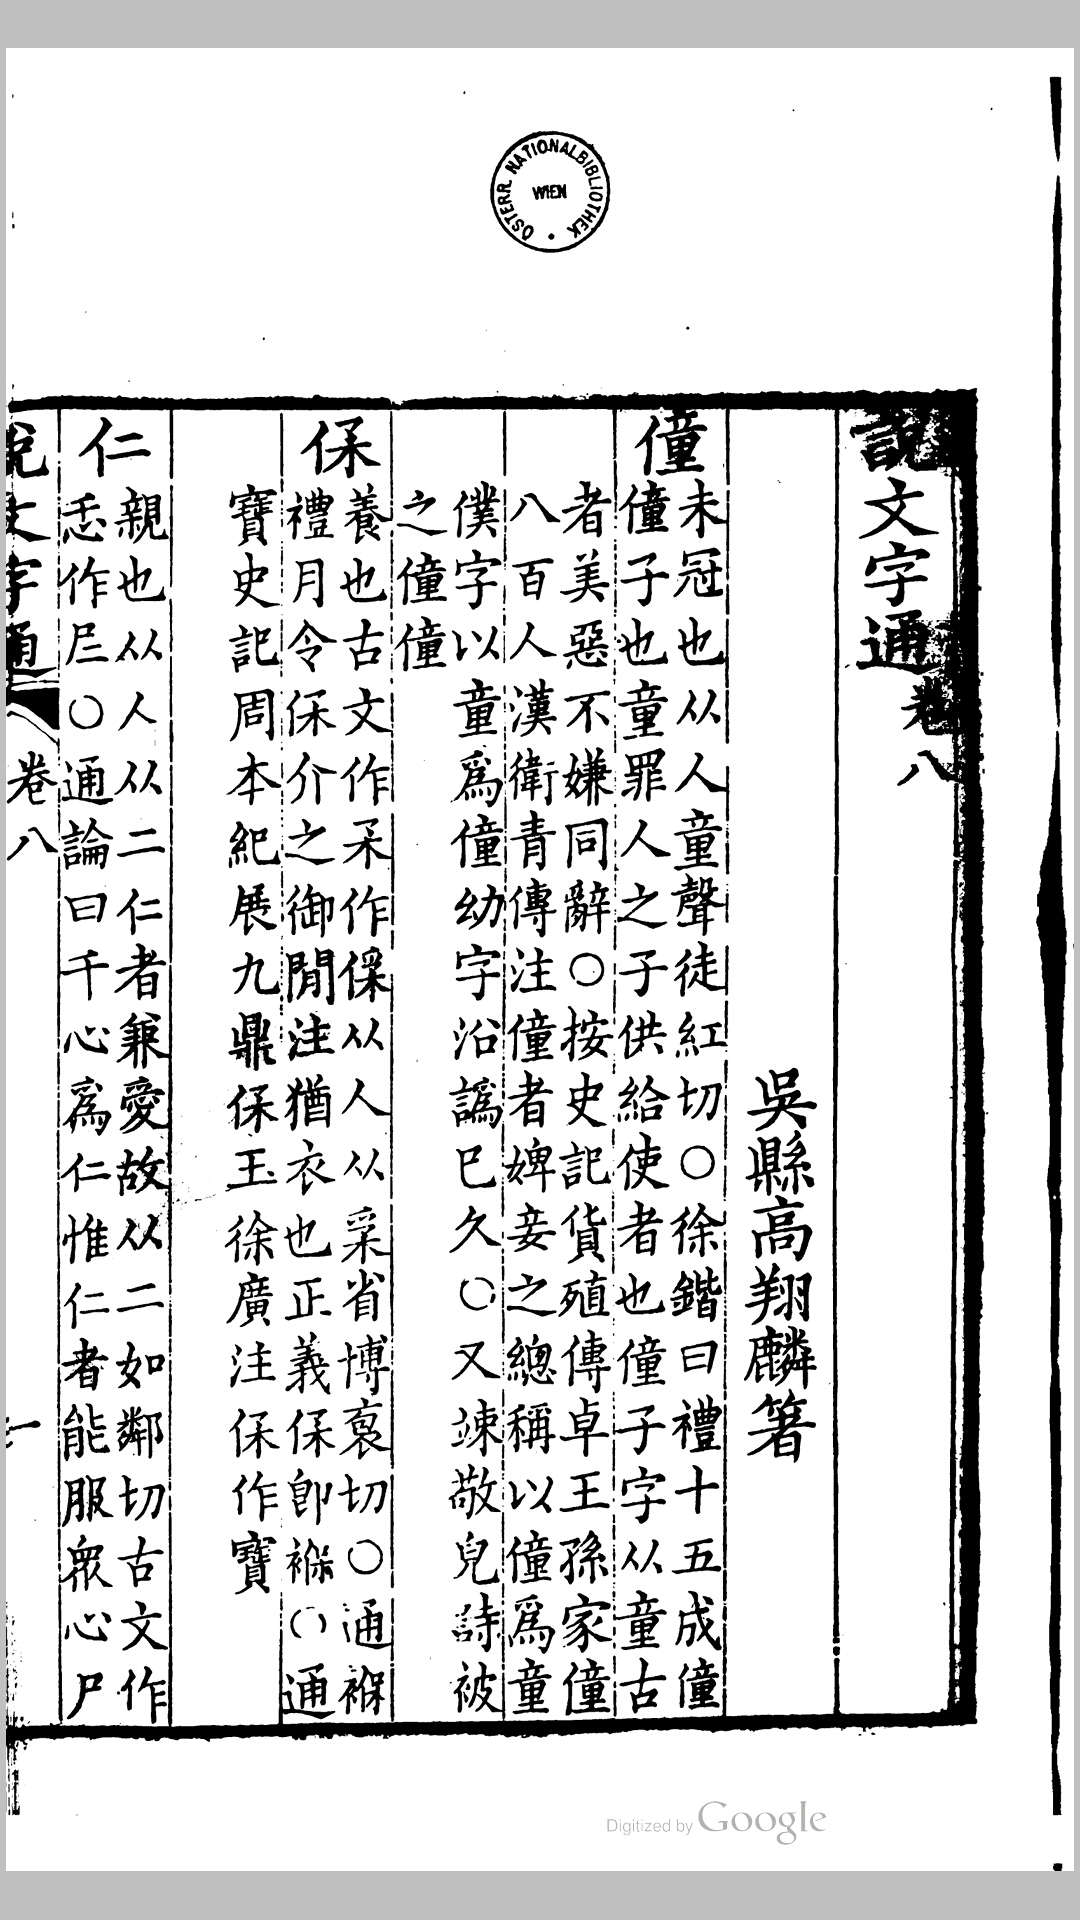 說文字通卷八
吳縣高翔麟箸
僮
未冠也从人童聲徒紅切○徐鍇曰禮十五成僮
僮子也童罪人之子供給使者也僮子字从童古
者美惡不嫌同辭○按史記貨殖傳卓王孫家僮
八百人漢衛青傳注僮者婢妾之總稱以僮爲童
僕字以童爲僮幼字沿譌巳久○又竦敬皃詩被
之僮僮
保
養也古文作禾作保从人从采省博裒切○通褓
禮月令保介之御閒注猶衣也正義保卽褓○通
寶史記周本紀展九鼎保玉徐廣注保作寶
仁
親也从人从二仁者兼愛故从二如鄰切古文作
忎作𡰥○通論曰千心爲仁惟仁者能服衆心尸
說文字通
卷八
一
ÖSTERR. NATIONALBIBLIOTHEK
WIEN
Digitized by Google